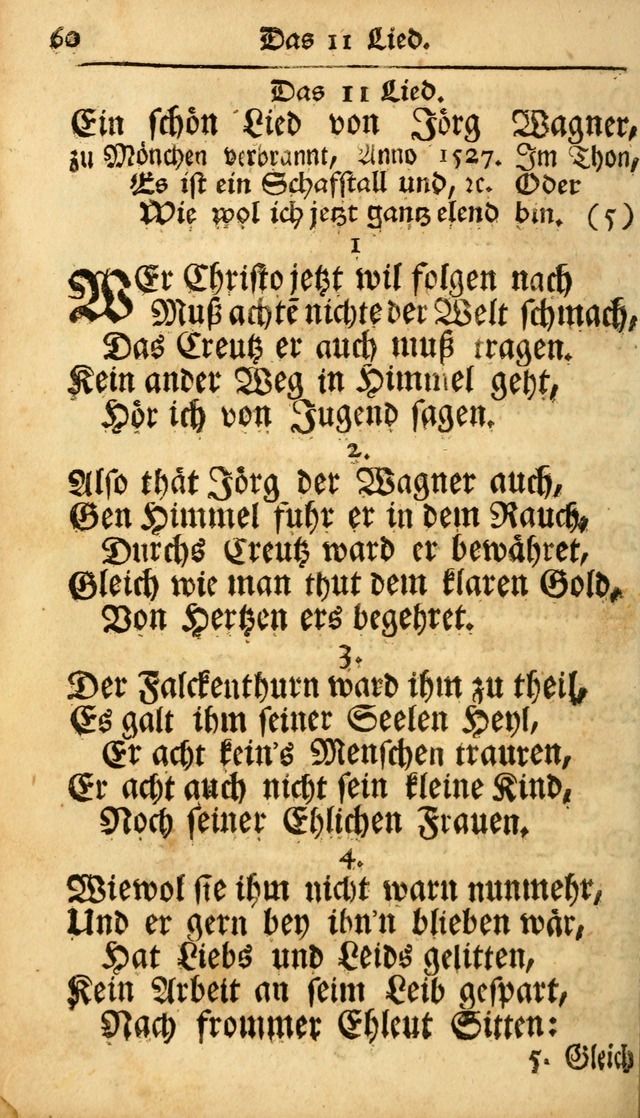 60 Das 11 Lied.
Das 11 Lied.
Ein schön Lied von Jörg Wagner,
zu Mönchen verbrannt, Anno 1527. Im Thon,
Es ist ein Schafstall und, ꝛc. Oder
Wie wol ich jetzt gantz elend bin. (5)
1
WEr Christo jetzt wil folgen nach
Muß achtē nichte der Welt schmach,
Das Creutz er auch muß tragen.
Kein ander Weg in Himmel geht,
Hör ich von Jugend sagen.
2.
Also thät Jörg der Wagner auch,
Gen Himmel fuhr er in dem Rauch,
Durchs Creutz ward er bewähret,
Gleich wie man thut dem klaren Gold,
Von Hertzen ers begehret.
3.
Der Falckenthurn ward ihm zu theil,
Es galt ihm seiner Seelen Heyl,
Er acht kein's Menschen trauren,
Er acht auch nicht sein kleine Kind,
Noch seiner Ehlichen Frauen.
4.
Wiewol sie ihm nicht warn nunmehr,
Und er gern bey ihn'n blieben wär,
Hat Liebs und Leids gelitten,
Kein Arbeit an seim Leib gespart,
Nach frommer Ehleut Sitten:
5. Gleich